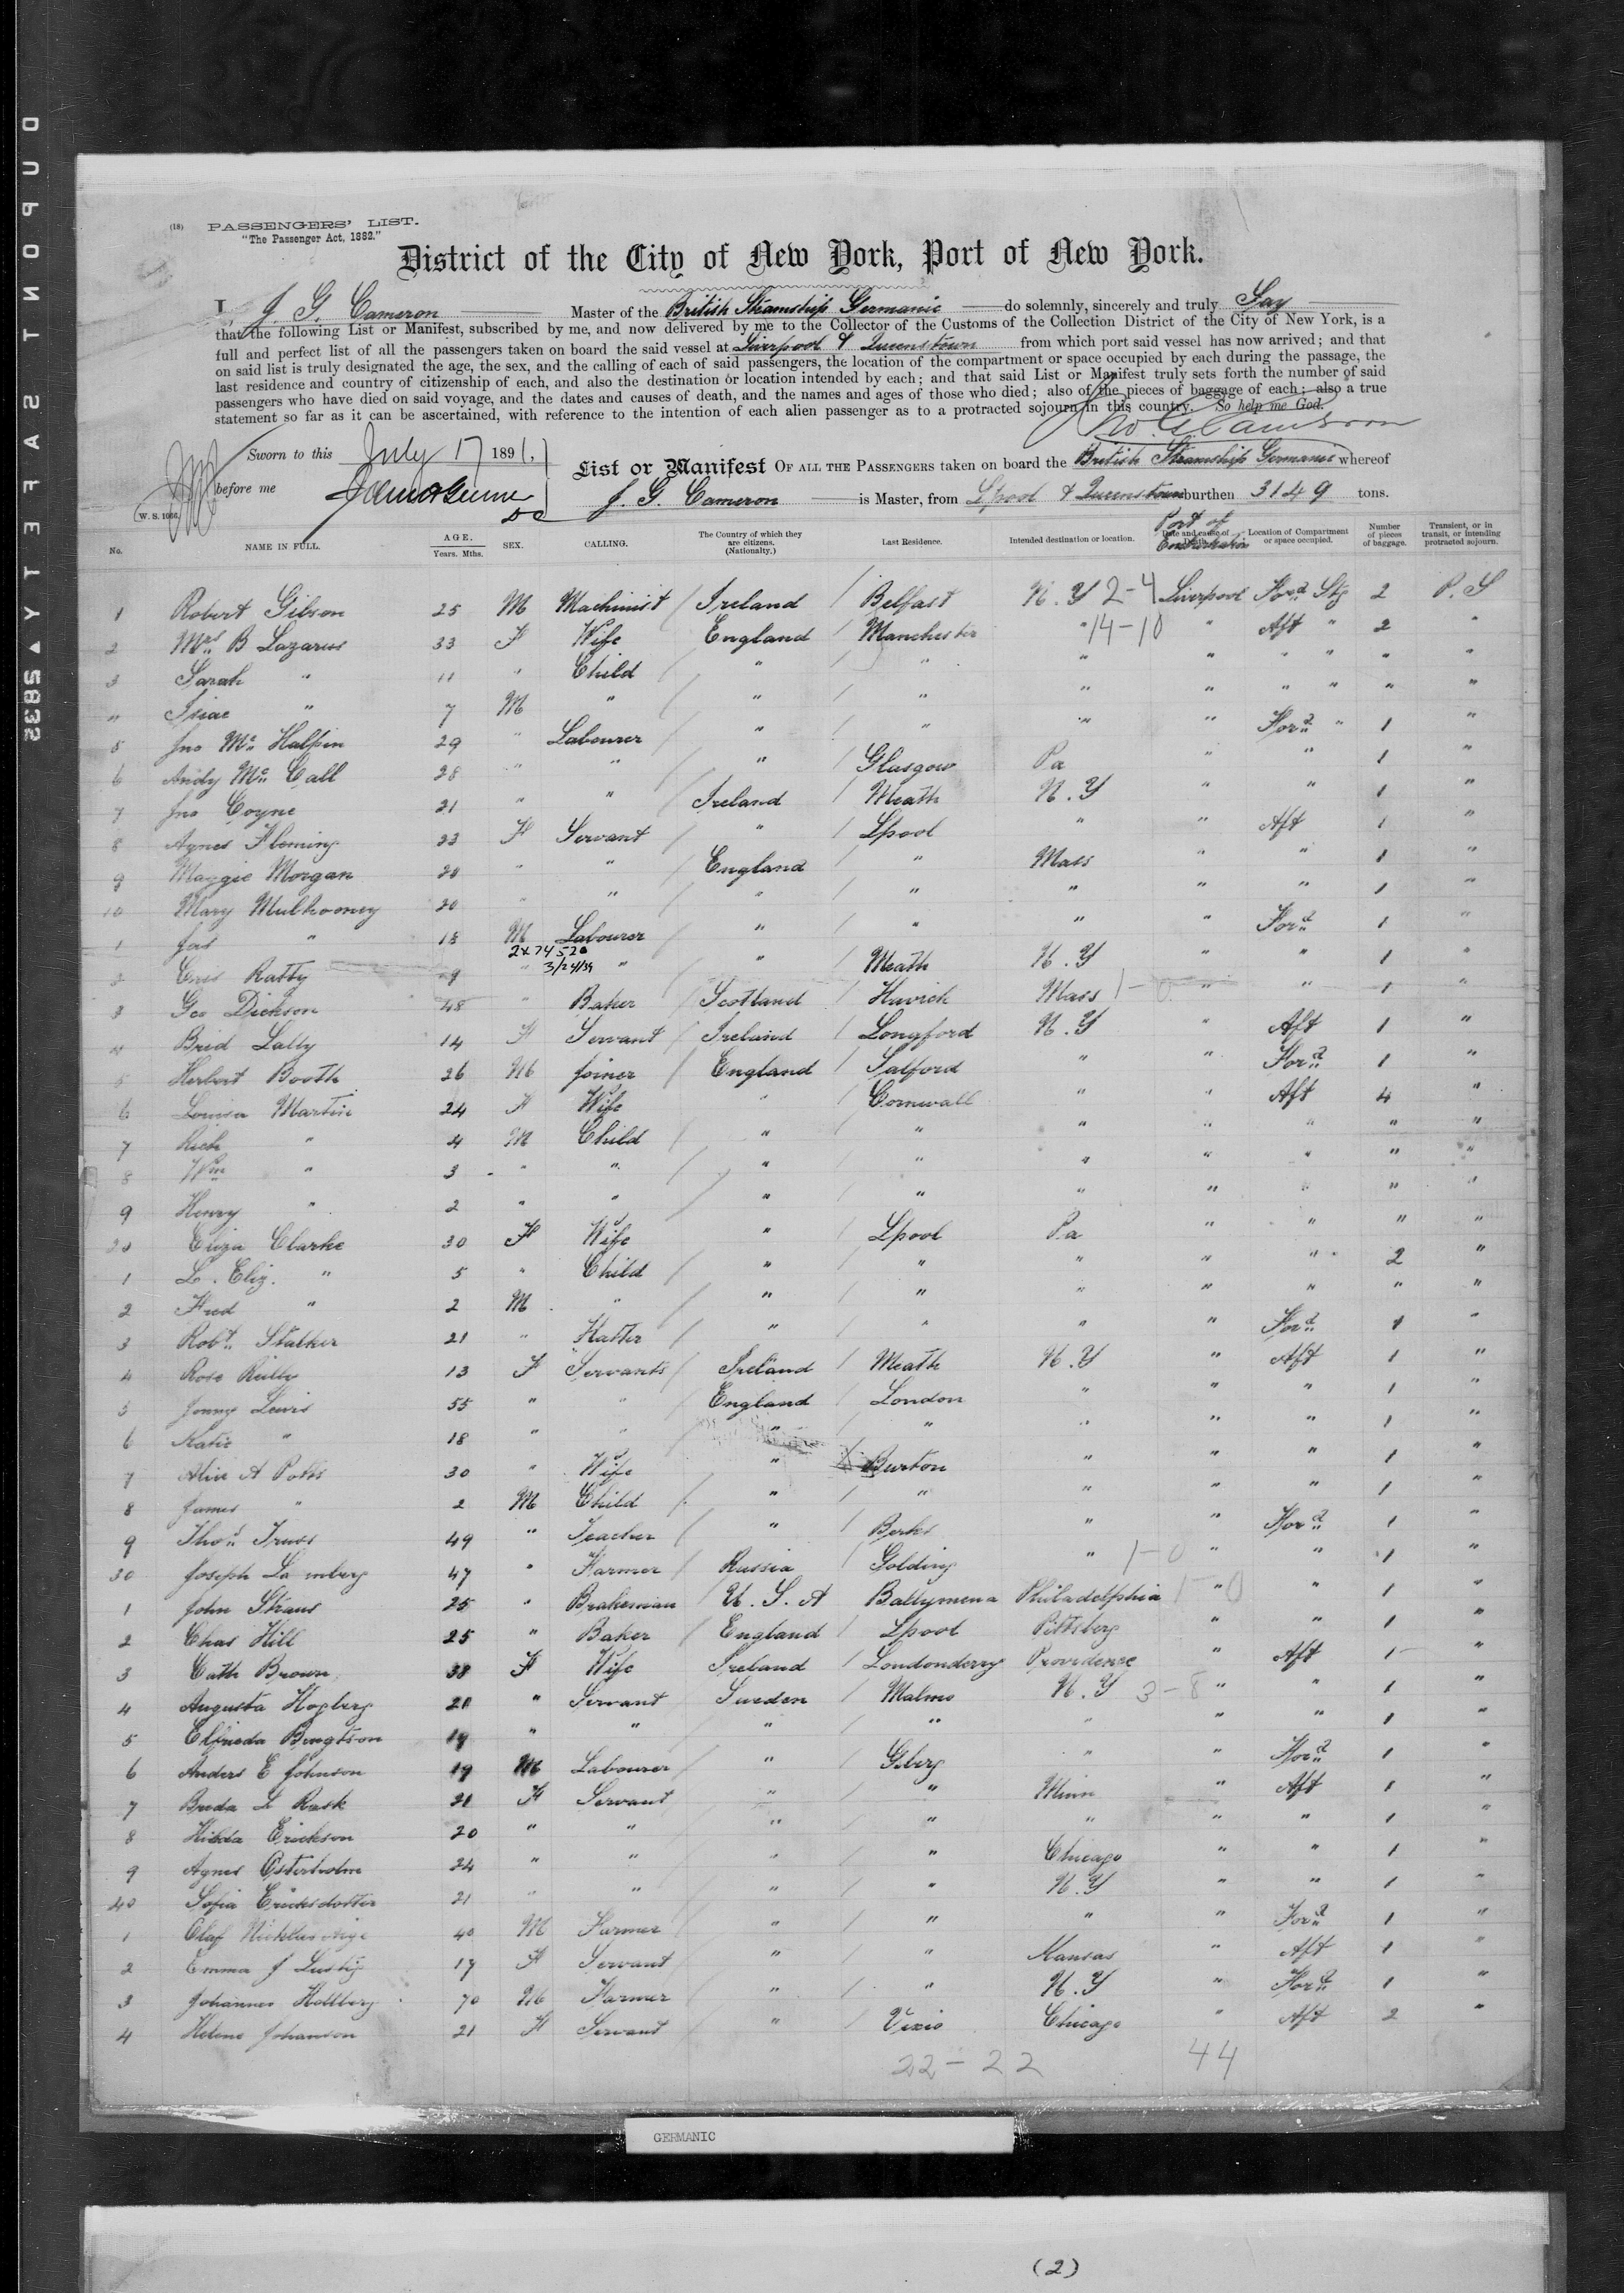 DUPONT SAFETY ▲ 5832
(18) PASSENGERS' LIST.
"The Passenger Act, 1882."
District of the City of New York, Port of New York.
I, J. G. Cameron Master of the British Steamship Germanic do solemnly, sincerely and truly Say
that the following List or Manifest, subscribed by me, and now delivered by me to the Collector of the Customs of the Collection District of the City of New York, is a
full and perfect list of all the passengers taken on board the said vessel at Liverpool & Queenstown from which port said vessel has now arrived; and that
on said list is truly designated the age, the sex, and the calling of each of said passengers, the location of the compartment or space occupied by each during the passage, the
last residence and country of citizenship of each, and also the destination or location intended by each; and that said List or Manifest truly sets forth the number of said
passengers who have died on said voyage, and the dates and causes of death, and the names and ages of those who died; also of the pieces of baggage of each; also a true
statement so far as it can be ascertained, with reference to the intention of each alien passenger as to a protracted sojourn in this country. So help me God.
Jno G Cameron
Sworn to this July 17 1891,
before me
W. S. 1066.
List or Manifest OF ALL THE PASSENGERS taken on board the British Steamship Germanic whereof
J. G. Cameron is Master, from Lpool & Queenstown burthen 3149 tons.
No. NAME IN FULL. AGE. Years. Mths. SEX. CALLING. The Country of which they are citizens. (Nationality.) Last Residence. Intended destination or location. Date and cause of Death. Port of Embarkation Location of Compartment or space occupied. Number of pieces of baggage. Transient, or in transit, or intending protracted sojourn.
1 Robert Gibson 25 M Machinist / Ireland / Belfast N.Y 2-4 Liverpool For'd Stg 2 P.S
2 Mrs B Lazarus 33 F Wife England Manchester " 14-10 " Aft " 2 "
3 Sarah " 11 " Child / " / " " " " " " "
" Isaac " 7 M " / " / " " " " " " "
5 Jno Mc Halpin 29 " Labourer " " " " For'd " 1 "
6 Andy Mc Call 28 " " " Glasgow Pa " " 1 "
7 Jno Coyne 21 " " Ireland / Meath N.Y " " 1 "
8 Agnes Fleming 23 F Servant " / Lpool " " Aft 1 "
9 Maggie Morgan 20 " " England / " Mass " " 1 "
10 Mary Mulhooney 20 " " " / " " " " 1 "
1 Jas " 18 M Labourer " / " " " For'd 1 "
2x74520
3/24/39
2 Ratty " " " Meath N.Y " " 1 "
3 Geo Dickson 48 " Baker / Scotland / Hawick Mass 1-0 " " 1 "
4 Brid Lally 14 F Servant / Ireland / Longford N.Y " Aft 1 "
5 Herbert Booth 26 M Joiner / England / Salford " " For'd 1 "
6 Louisa Martin 24 F Wife " Cornwall " " Aft 4 "
7 Rich " 4 M Child / " / " " " " " "
8 Wm " 3 " " / " / " " " " " "
9 Henry " 2 " " / " / " " " " " "
20 Eliza Clarke 30 F Wife " Lpool Pa " " " "
1 L. Eliz. " 5 " Child / " " " " " 2 "
2 Fred " 2 M " / " / " " " " " "
3 Robt. Stalker 21 " Hatter / " / " " " For'd 1 "
4 Rose Reilly 13 F Servants / Ireland / Meath N.Y " Aft 1 "
5 Jenny Lewis 55 " " England / London " " " 1 "
6 Katie " 18 " " " / " " " " 1 "
7 A Potts 30 " Wife " Burton " " " 1 "
8 James " 2 M Child / " / " " " " 1 "
9 Thos 49 " Teacher / " / Berks " " For'd 1 "
30 Joseph 47 " Farmer / Russia / Golding " 1-0 " " 1 "
1 John Straus 25 " Brakesman / U.S.A Ballymena Philadelphia 1-0 " " 1 "
2 Chas Hill 25 " Baker / England / Lpool Pittsberg " " 1 "
3 Cath Brown 38 F Wife Ireland / Londonderry Providence " Aft 1 "
4 Augusta Hogberg 20 " Servant Sweden / Malmo N.Y 3-8 " " 1 "
5 Elfrieda Bengtson 19 " " / " / " " " " 1 "
6 Anders E Johnson 19 M Labourer / " / Gberg " " For'd 1 "
7 L Rask 21 F Servant " / " Minn " Aft 1 "
8 Hilda Erickson 20 " " / " / " " " " 1 "
9 Agnes Osterholm 24 " " / " / " Chicago " " 1 "
40 Sofia Ericksdotter 21 " " / " / " N.Y " " 1 "
1 Olaf 40 M Farmer / " / " " " For'd 1 "
2 Emma J 19 F Servant / " / " Kansas " Aft 1 "
3 Johannes Hallberg 70 M Farmer / " / " N.Y " For'd 1 "
4 Helene Johanson 21 F Servant / " / Vexio Chicago " Aft 2 "
22-22 44
GERMANIC
(2)